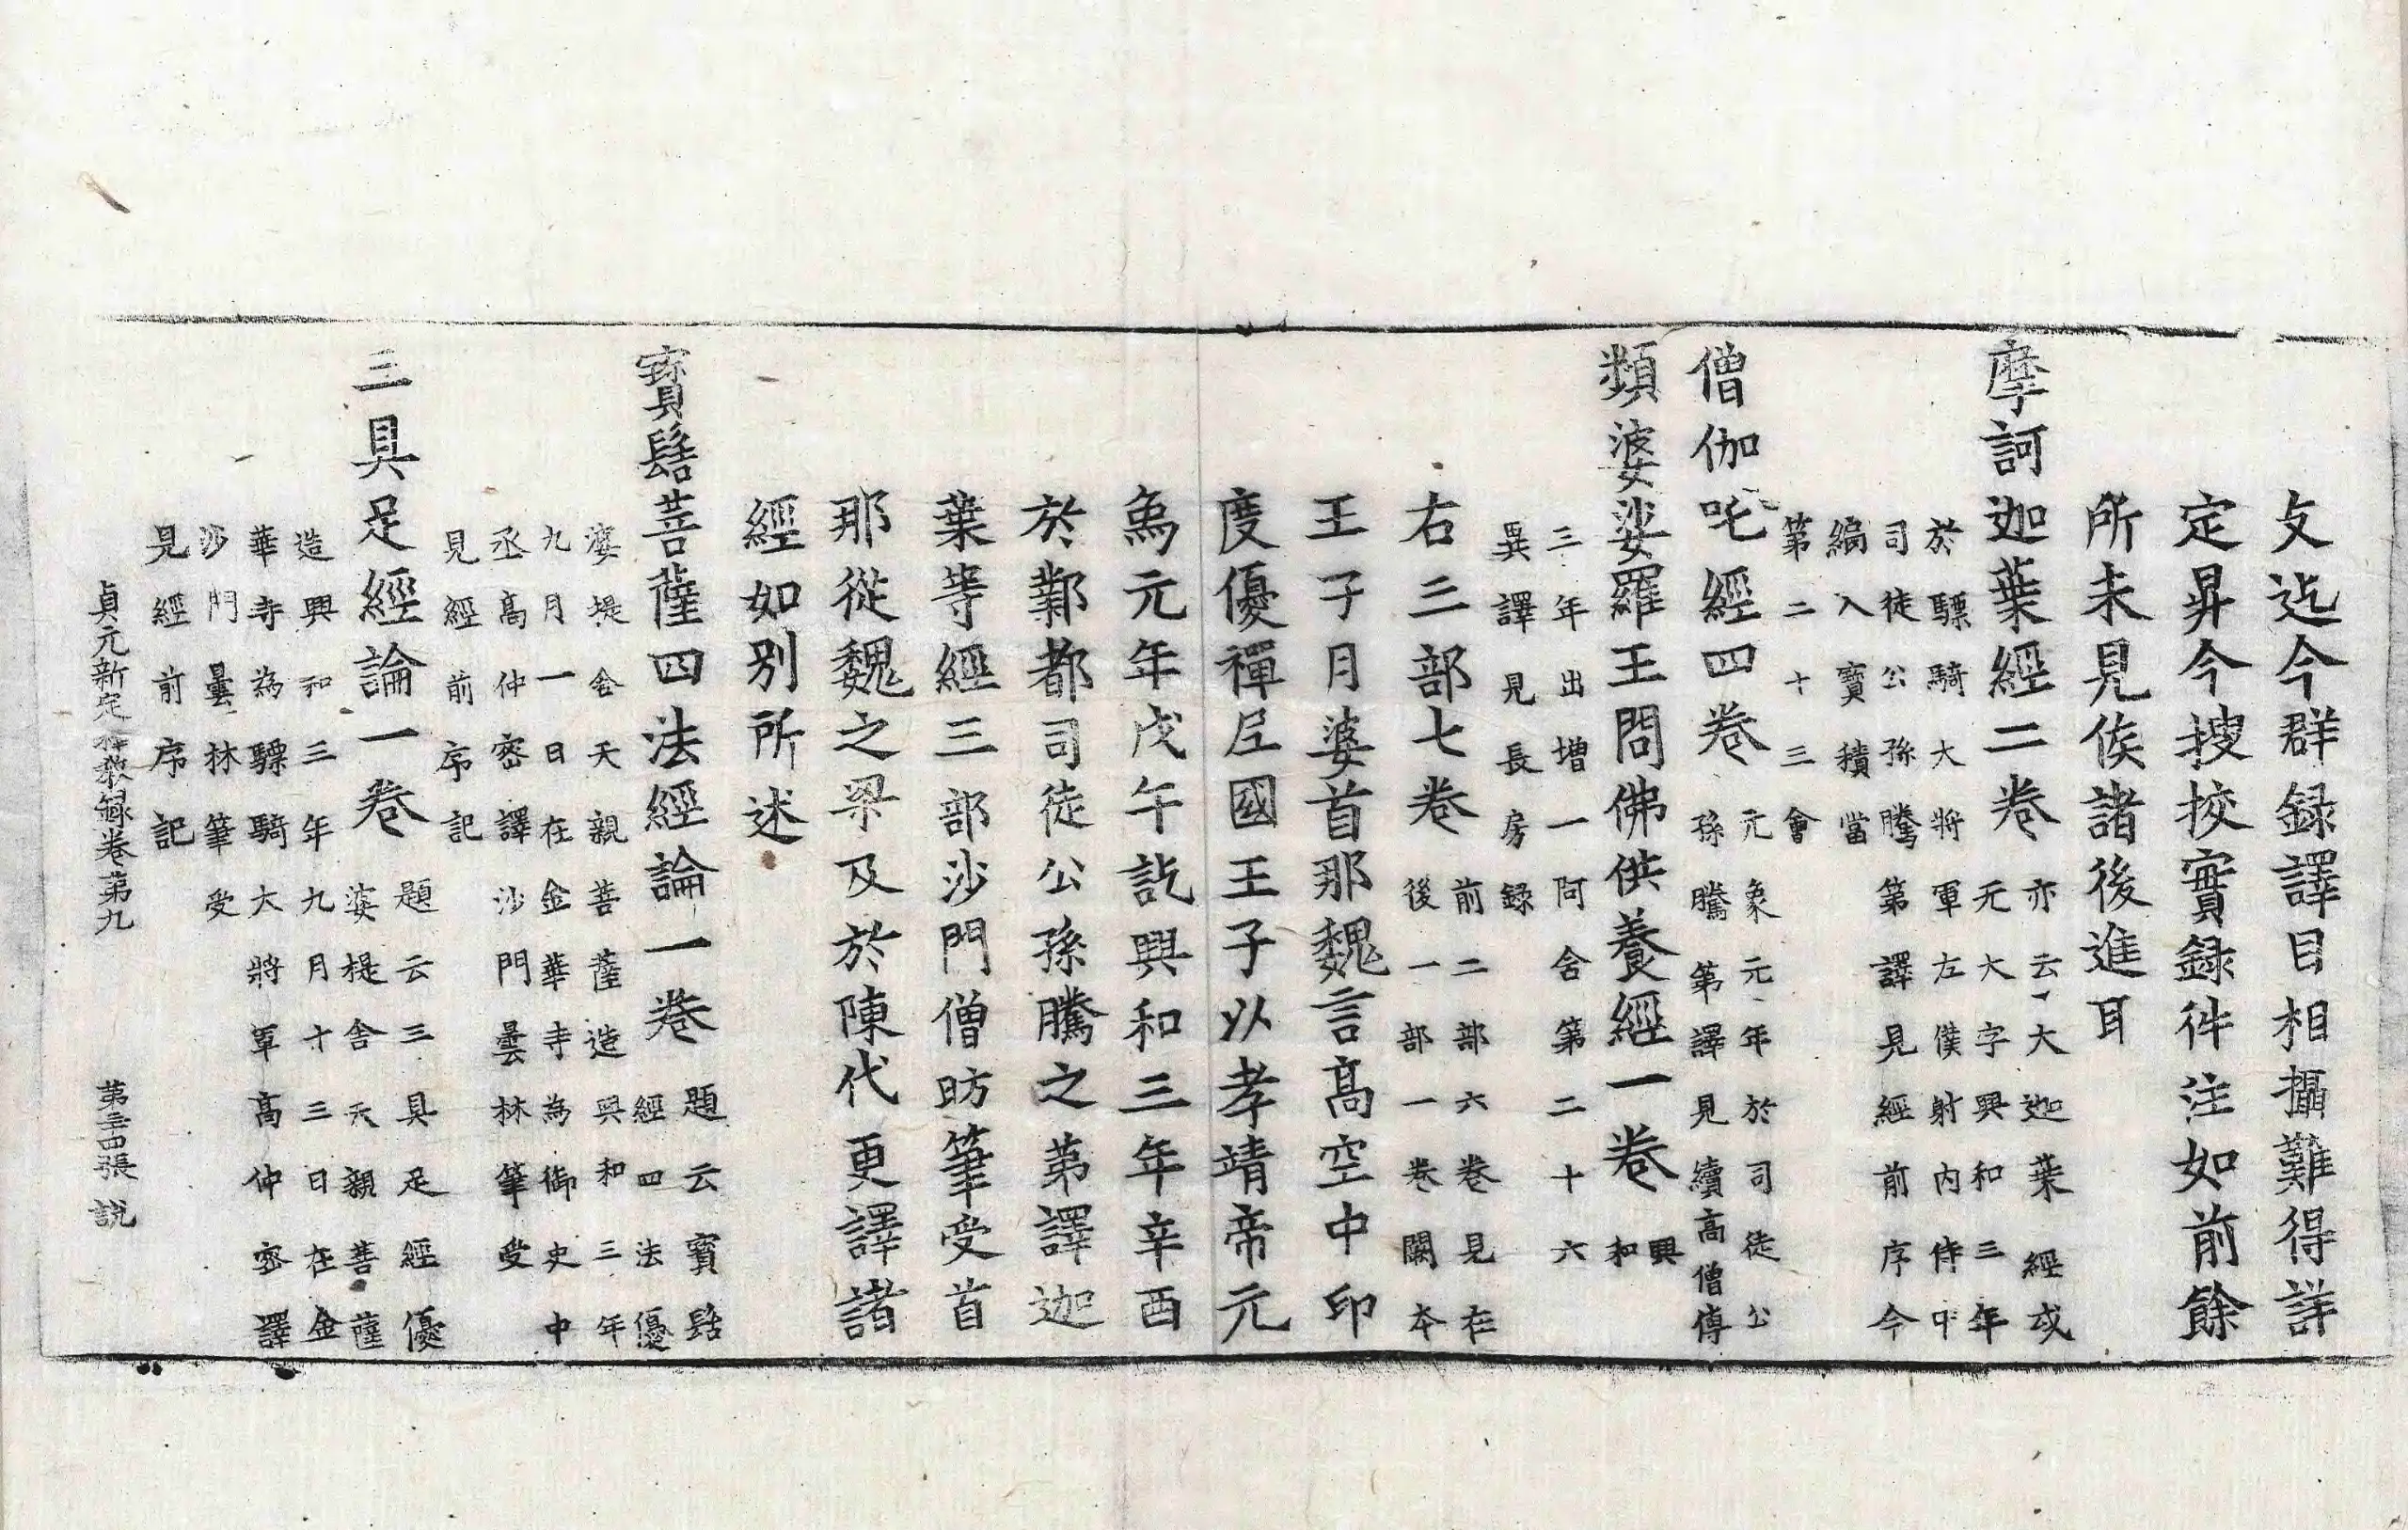 文迄今群録譯目相攝難得詳
定昇今搜挍實録件注如前餘
所未見俟諸後進耳
摩訶迦葉經二卷
亦云大迦葉經或
无大字興和三年
於驃騎大將軍左僕射内侍中
司徒公孫騰第譯見經前序今
編入寶積當
第二十三會
僧伽吒經四卷
元象元年於司徒公
孫騰第譯見續高僧傳
頻婆娑羅王問佛供養經一卷
興
和
三年出增一阿含第二十六
異譯見長房録
右三部七卷
前二部六卷見在
後一部一卷闕本
王子月婆首那魏言髙空中印
度優禪尼國王子以孝靖帝元
為元年戊午訖興和三年辛酉
於鄴都司徒公孫騰之第譯迦
葉等經三部沙門僧昉筆受首
那從魏之梁及於陳代更譯諸
經如别所述
寶髻菩薩四法經論一卷
題云寶髻
經四法優
婆提舍天親菩薩造興和三年
九月一日在金華寺為御史中
丞髙仲密譯沙門曇林筆受
見經前序記
三具足經論一卷
題云三具足經優
婆提舍天親菩薩
造興和三年九月十三日在金
華寺為驃騎大將軍髙仲密譯
沙門曇林筆受
見經前序記
貞元新定釋教録卷第九 第三四張 說